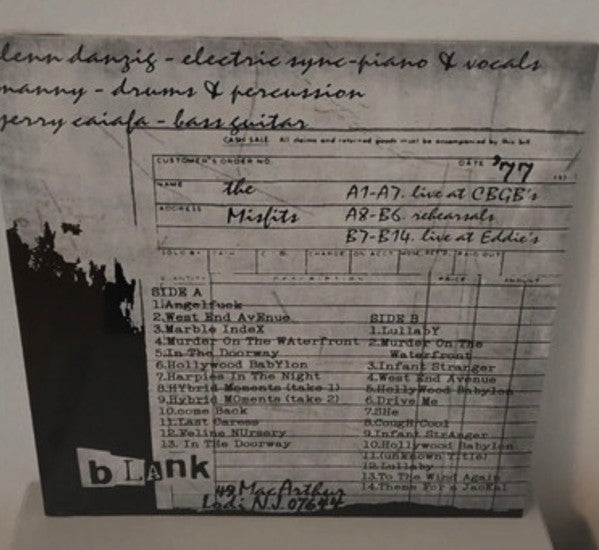 lenn danzig - electric sync-piano & vocals
manny - drums & percussion
jerry caiafa - bass guitar
CASH SALE All claims and returned goods must be accompanied by this bill
CUSTOMER'S ORDER NO. DATE '77
NAME the A1-A7. live at CBGB's
ADDRESS Misfits A8-B6. rehearsals
B7-B14. live at Eddie's
SOLD BY CASH C.O.D. CHARGE ON ACCT. MDSE. RET'D. PAID OUT
QUANTITY DESCRIPTION PRICE AMOUNT
SIDE A
1.Angelfuck
2.West End AvEnue
3.Marble IndeX
4.Murder On The WAterfront
5.In The Doorway
6.Hollywood BabYlon
7.Harpies In The Night
8.HYbrid Moments (take 1)
9.Hybrid MOments (take 2)
10.come Back
11.Last Caress
12.Feline NUrsery
13. In THe Doorway
SIDE B
1.LullabY
2.Murder On The
Waterfront
3.Infant Stranger
4.West End Avenue
5.HollyWood Babylon
6.Drive Me
7.SHe
8.CougH/Cool
9.Infant StrAnger
10.Hollywood Babylon
11.(unKnown Title)
12.Lullaby
13.To The Wind Again
14.Theme For a JacKal
bLAnk
49 MacArthur
Lodi N.J. 07644